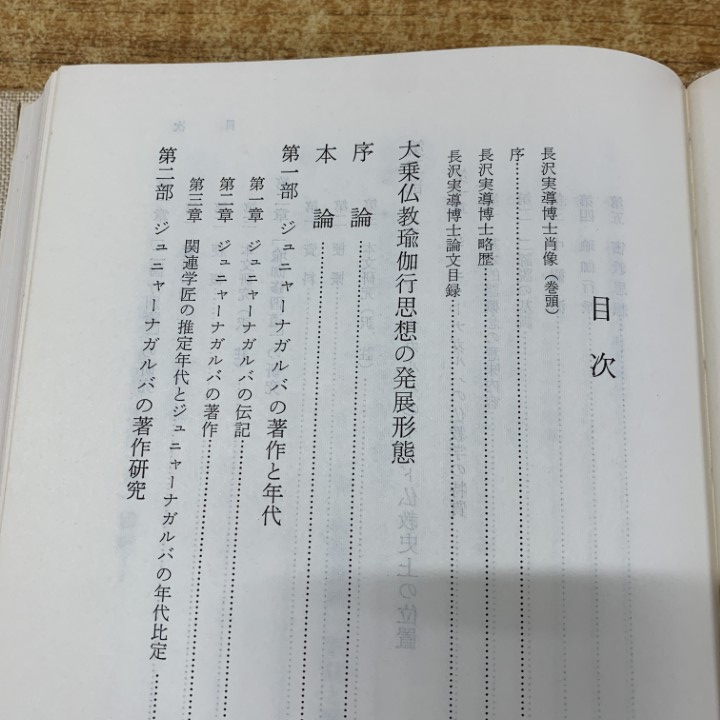 目次
長沢実導博士肖像（巻頭）
序
長沢実導博士略歴
長沢実導博士論文目録
大乗仏教瑜伽行思想の発展形態
序論
本論
第一部 ジュニャーナガルバの著作と年代
第一章 ジュニャーナガルバの伝記
第二章 ジュニャーナガルバの著作
第三章 関連学匠の推定年代とジュニャーナガルバの年代比定
第二部 ジュニャーナガルバの著作研究